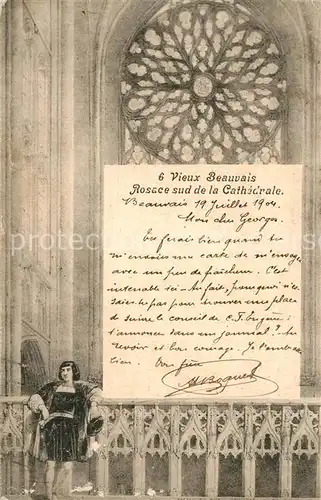 6 Vieux Beauvais
Rosace sud de la Cathédrale.
Beauvais 19 Juillet 1904.
Mon cher Georges.
Tu ferais bien quand tu
m'envoies une carte de m'envoyer
avec un peu de fraîcheur. C'est
intenable ici. Au fait, pourquoi n'es-
pas pour trouver une place
de suivre le conseil de
l'annonce dans un journal? Au
revoir et bon courage. Je t'embrasse
bien. Ton